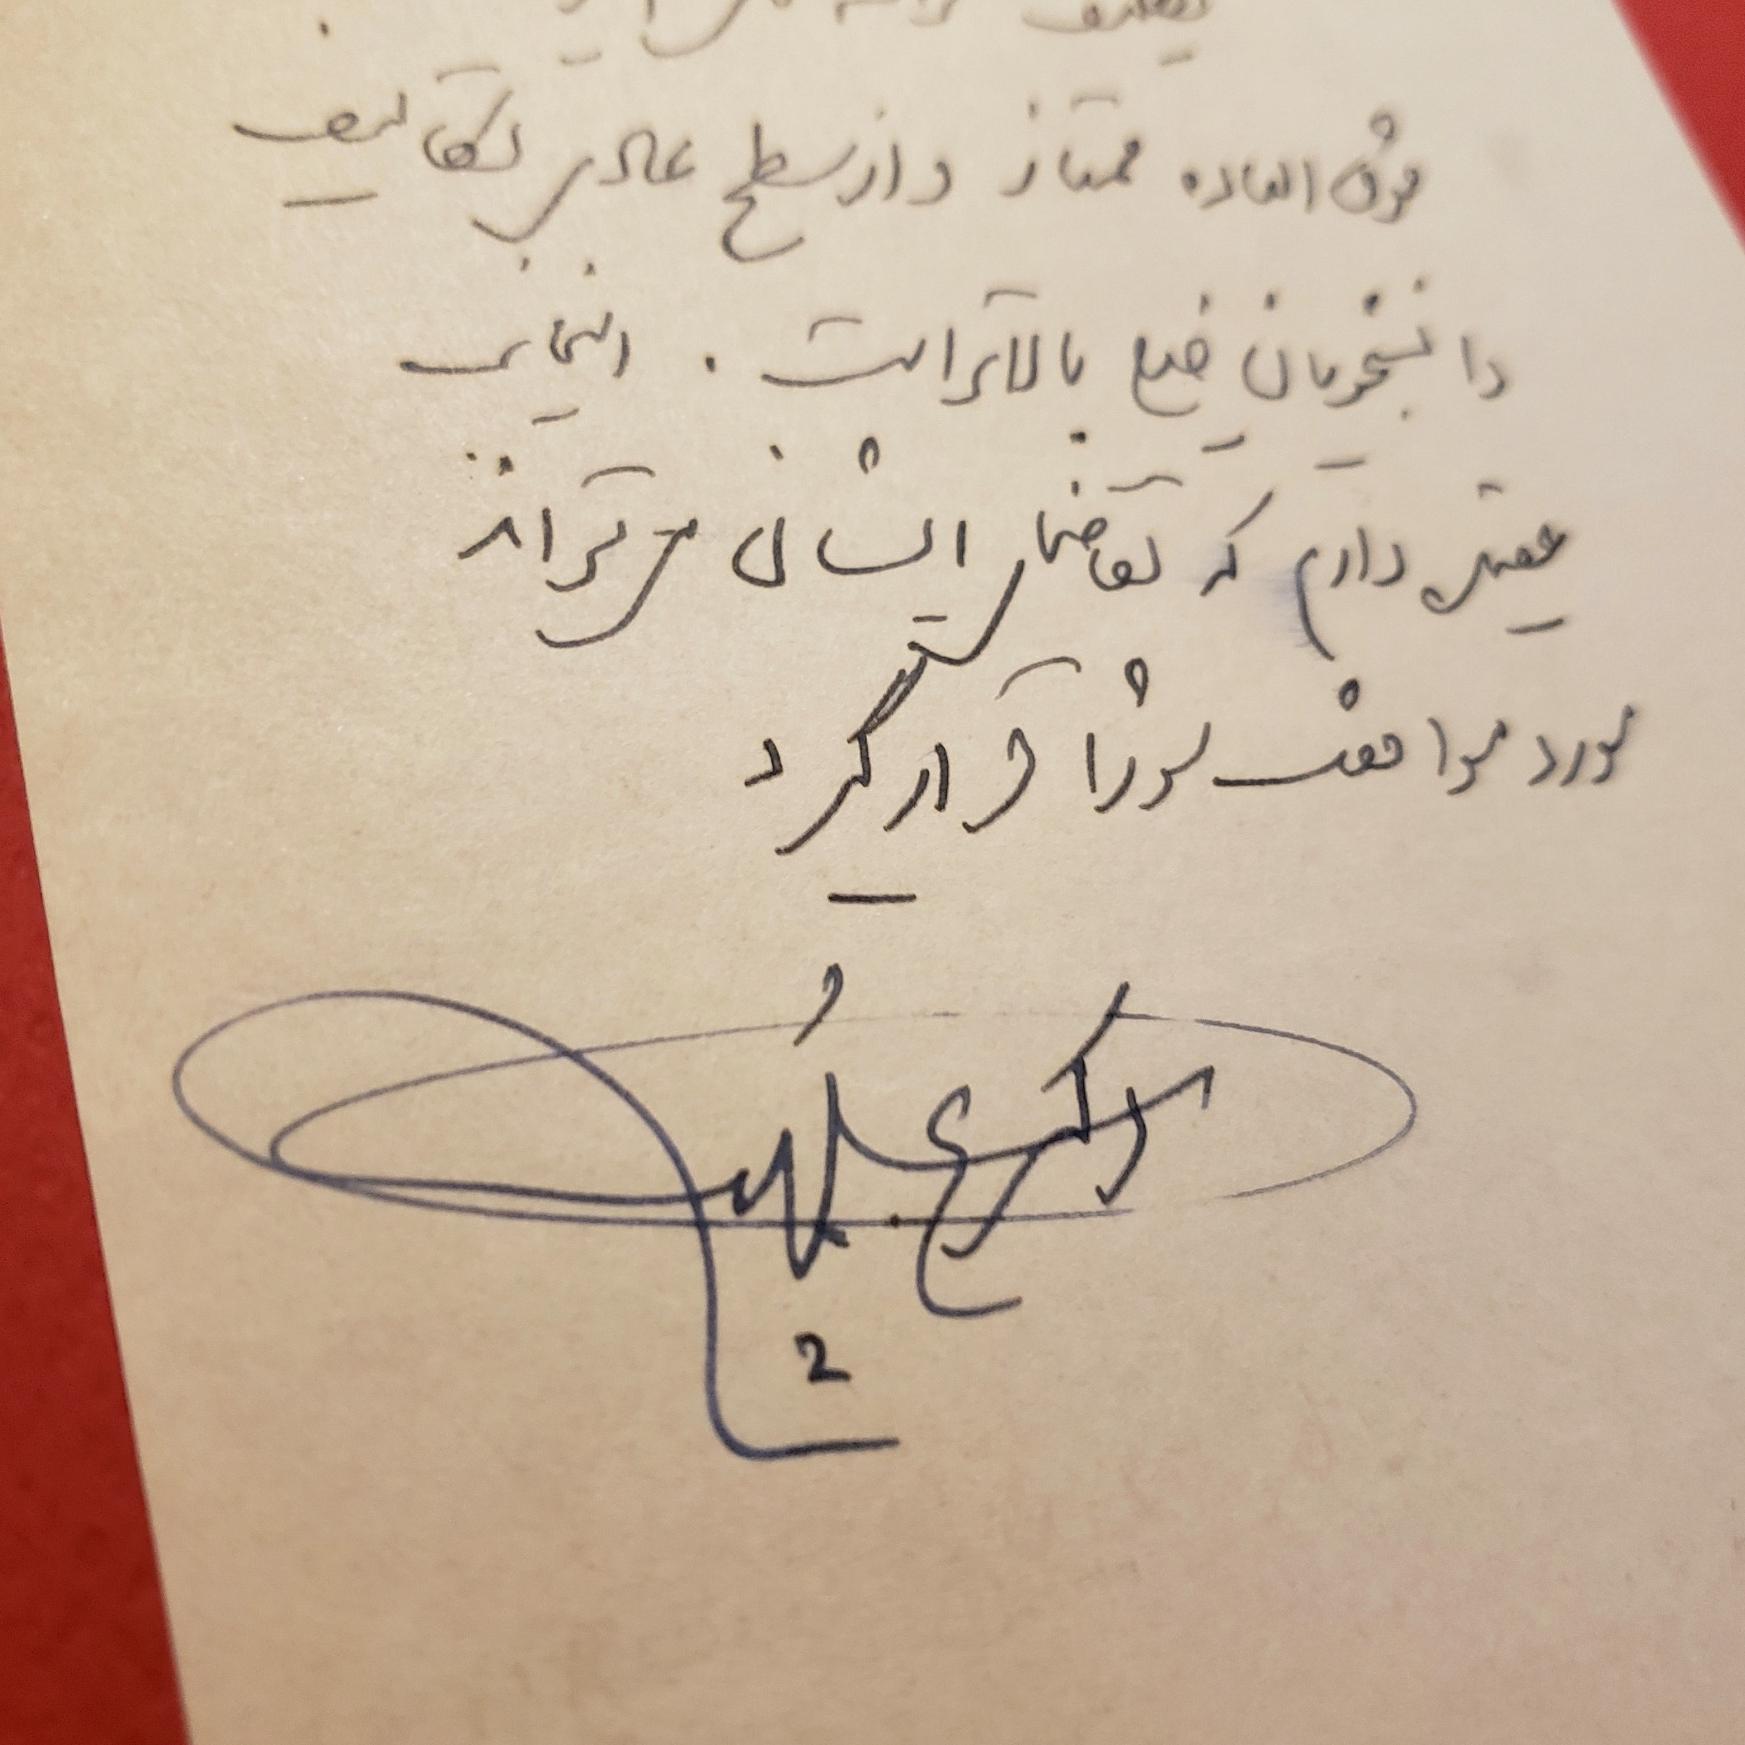 فوق العاده ممتاز و از سطح عادی تکالیف
دانشجویان خیلی بالاتر است . اینجانب
عقیده دارم که تقاضای ایشان می تواند
مورد موافقت شورا قرار گیرد
دکتر
2